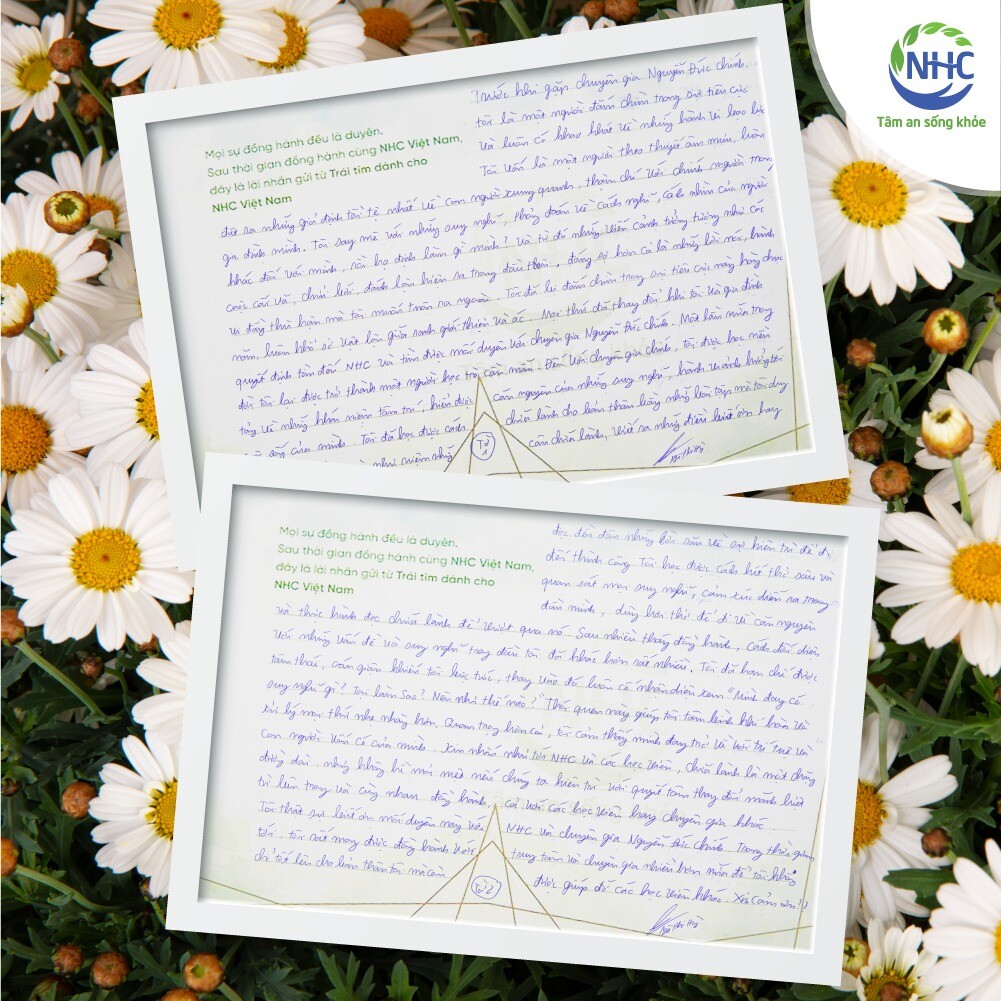 NHC
Tâm an sống khỏe
Mọi sự đồng hành đều là duyên.
Sau thời gian đồng hành cùng NHC Việt Nam,
đây là lời nhắn gửi từ Trái tim dành cho
NHC Việt Nam
Trước khi gặp chuyên gia Nguyễn Đức Chính,
tôi là một người đắm chìm trong sự tiêu cực
và luôn có khao khát về những hành vi bạo lực
Tôi vốn là một người theo thuyết âm mưu, luôn
đặt ra những giả định tồi tệ nhất về con người xung quanh, thậm chí với chính người trong
gia đình mình. Tôi say mê với những suy nghĩ, phỏng đoán về cách nghĩ, cách nhìn của người
khác đối với mình, rồi họ định làm gì mình? Và từ đó những viễn cảnh tưởng tượng như các
cuộc cãi vã, chửi bới, đánh lộn hiện ra trong đầu tôi, đáng sợ hơn cả là những lời nói, hành
vi đầy thù hằn mà tôi muốn tuôn ra ngoài. Tôi đã bị đắm chìm trong sự tiêu cực này hàng chục
năm, luôn khổ sở vật lộn giữa ranh giới thiện và ác. Mọi thứ đã thay đổi khi tôi và gia đình
quyết định tìm đến NHC và tìm được mối duyên với chuyên gia Nguyễn Đức Chính. Một lần nữa trong
đời tôi lại được trở thành một người học trò cần mẫn. Đến với chuyên gia Chính, tôi được học nền
tảng về những khái niệm tâm trí, hiểu được căn nguyên của những suy nghĩ, hành vi ảnh hưởng đến
sống của mình. Tôi đã học được cách chữa lành cho bản thân bằng những bài tập mà tôi duy
niệm những Tờ 1 cần chữa lành, viết ra những điều biết ơn hay
Mọi sự đồng hành đều là duyên.
Sau thời gian đồng hành cùng NHC Việt Nam,
đây là lời nhắn gửi từ Trái tim dành cho
NHC Việt Nam
đọc đến đoạn những bài văn về sự kiên trì để đi
đến thành công. Tôi học được cách hít thở sâu và
quan sát mọi suy nghĩ, cảm xúc diễn ra trong
đầu mình, dùng hơi thở để đi về căn nguyên
và thực hành đọc chữa lành để vượt qua nó. Sau nhiều tháng đồng hành, cách đối diện
với những vấn đề và suy nghĩ trong đầu tôi đã khác hơn rất nhiều. Tôi đã hạn chế được
tâm thái, cơn giận khiến tôi bức tức, thay vào đó luôn có nhận diện xem "Mình đang có
suy nghĩ gì? Tại làm sao? Nên như thế nào?" Thói quen này giúp tôi tâm bình khí hòa và
xử lý mọi thứ nhẹ nhàng hơn. Quan trọng hơn cả, tôi cảm thấy mình đang trở về với trí tuệ và
con người vốn có của mình. Xin nhắn nhủ tới NHC và các học viên, chữa lành là một chặng
đường dài, nhưng không hề mỏi mệt nếu chúng ta kiên trì với quyết tâm thay đổi mãnh liệt
từ bên trong và cùng nhau đồng hành, cả với các học viên hay chuyên gia khác.
Tôi thật sự biết ơn mối duyên này với NHC và chuyên gia Nguyễn Đức Chính. Trong thời gian
tới, tôi rất mong được đồng hành với trung tâm và chuyên gia nhiều hơn nữa để tôi không
chỉ tốt lên cho bản thân tôi mà còn được giúp đỡ các học viên khác. Xin cảm ơn!
Tờ 2